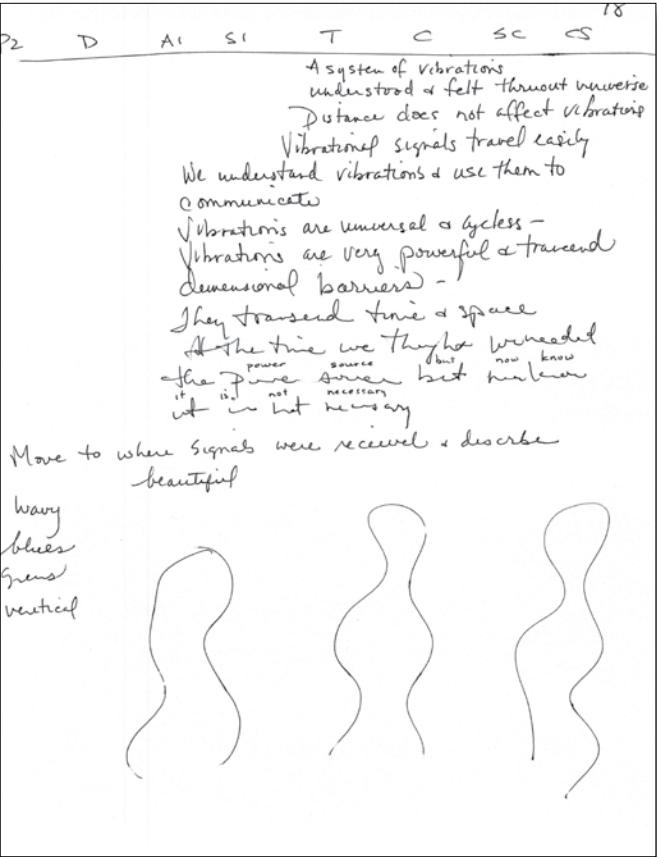 18
P2 D AI SI T C SC CS
A system of vibrations
understood & felt thruout universe
Distance does not affect vibrations
Vibrational signals travel easily
We understand vibrations & use them to
communicate
Vibrations are universal & ageless -
Vibrations are very powerful & trancend
demensional barriers -
They transend time & space
At the time we thought we needed
power source but now know
the power source but now know
it is not necessary
it is not necessary
Move to where signals were received & describe
beautiful
wavy
blues
greens
vertical